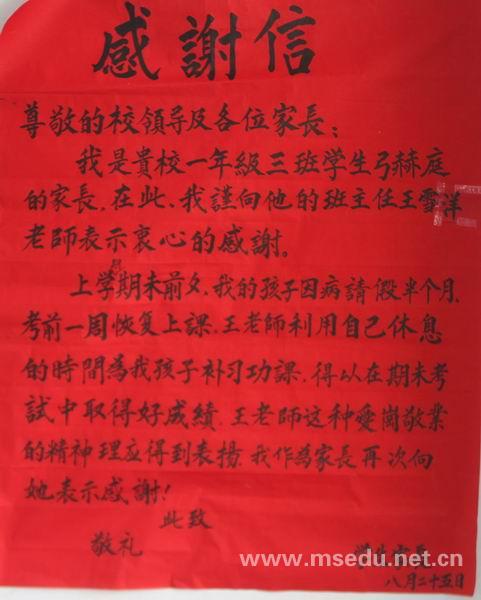 感謝信
尊敬的校領导及各位家長:
我是貴校一年級三班学生弓赫庭
的家長,在此、我謹向他的班主任王雪洋
老師表示衷心的感謝。
上学期末前夕,我的孩子因病請假半个月,
考前一周恢复上課,王老師利用自己休息
的時間為我孩子补习功課,得以在期末考
試中取得好成績,王老師这种爱崗敬業
的精神理应得到表揚,我作為家長再次向
她表示感謝!
此致
敬礼
学生家長
www.msedu.net.cn
八月二十五日